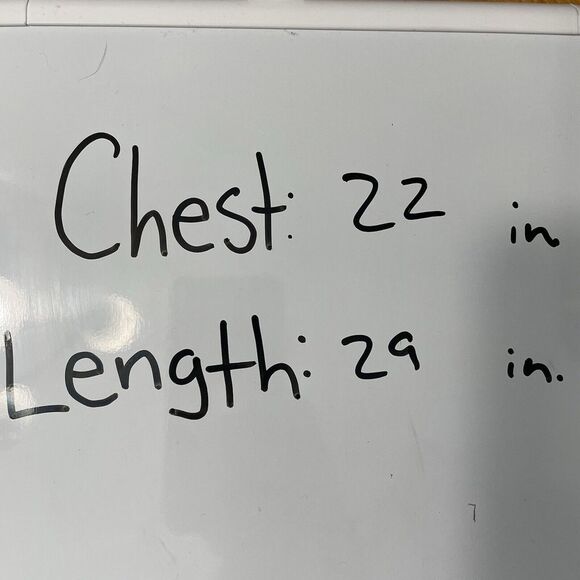 Chest: 22 in.
Length: 29 in.